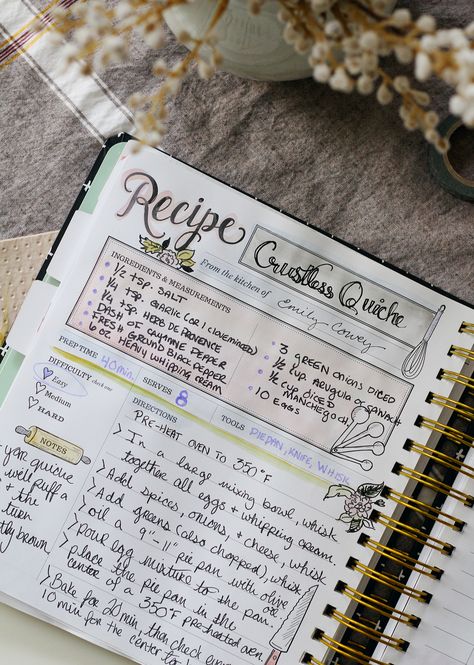 Recipe
Crustless Quiche
From the kitchen of Emily Conrey
INGREDIENTS & MEASUREMENTS
1/2 tsp. SALT
1/4 tsp. GARLIC (OR 1 CLOVE MINCED)
1/4 tsp. HERB DE PROVENCE
DASH OF CAYANNE PEPPER
FRESH GROUND BLACK PEPPER
6 oz HEAVY WHIPPING CREAM
3 GREEN ONIONS DICED
1/2 CUP. ARUGULA OR SPINACH
1/2 CUP DICED
MANCHEGO CH.
10 EGGS
PREP TIME 40 min.
SERVES 8
TOOLS
PIE PAN, KNIFE, WHISK
DIFFICULTY check one
Easy
Medium
HARD
NOTES
you
will puff a
& the
turn
brown
DIRECTIONS
PRE-HEAT OVEN TO 350°F
> In a large mixing bowl, whisk
together all eggs & whipping cream.
> Add spices, onions, & cheese, whisk
> Add greens (also chopped), whisk
> oil a 9"-11" pie pan with olive oil
> pour egg mixture to the pan.
> place the pie pan in the
center of a 350°F pre-heated oven
> Bake for 20 min, then check every
10 min for the center to